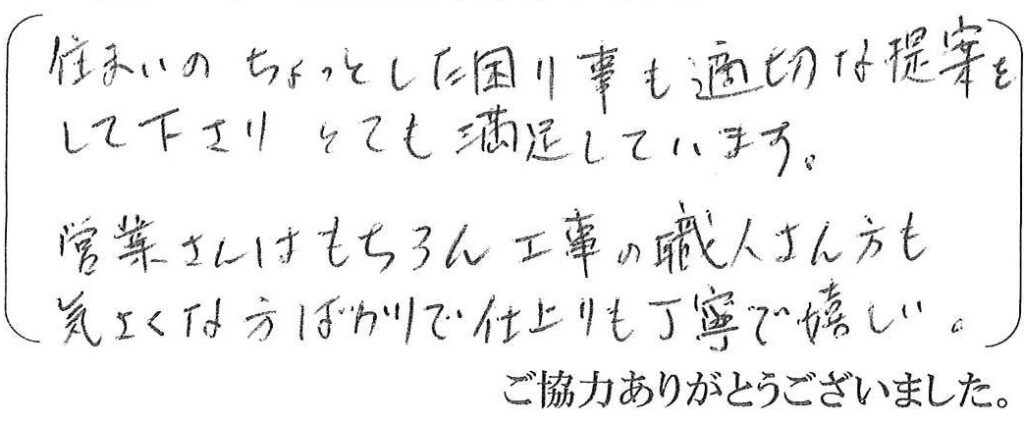 住まいの ちょっとした困り事も適切な提案を
して下さり とても満足しています。
営業さんはもちろん 工事の職人さん方も
気さくな方ばかりで仕上りも丁寧で嬉しい。
ご協力ありがとうございました。